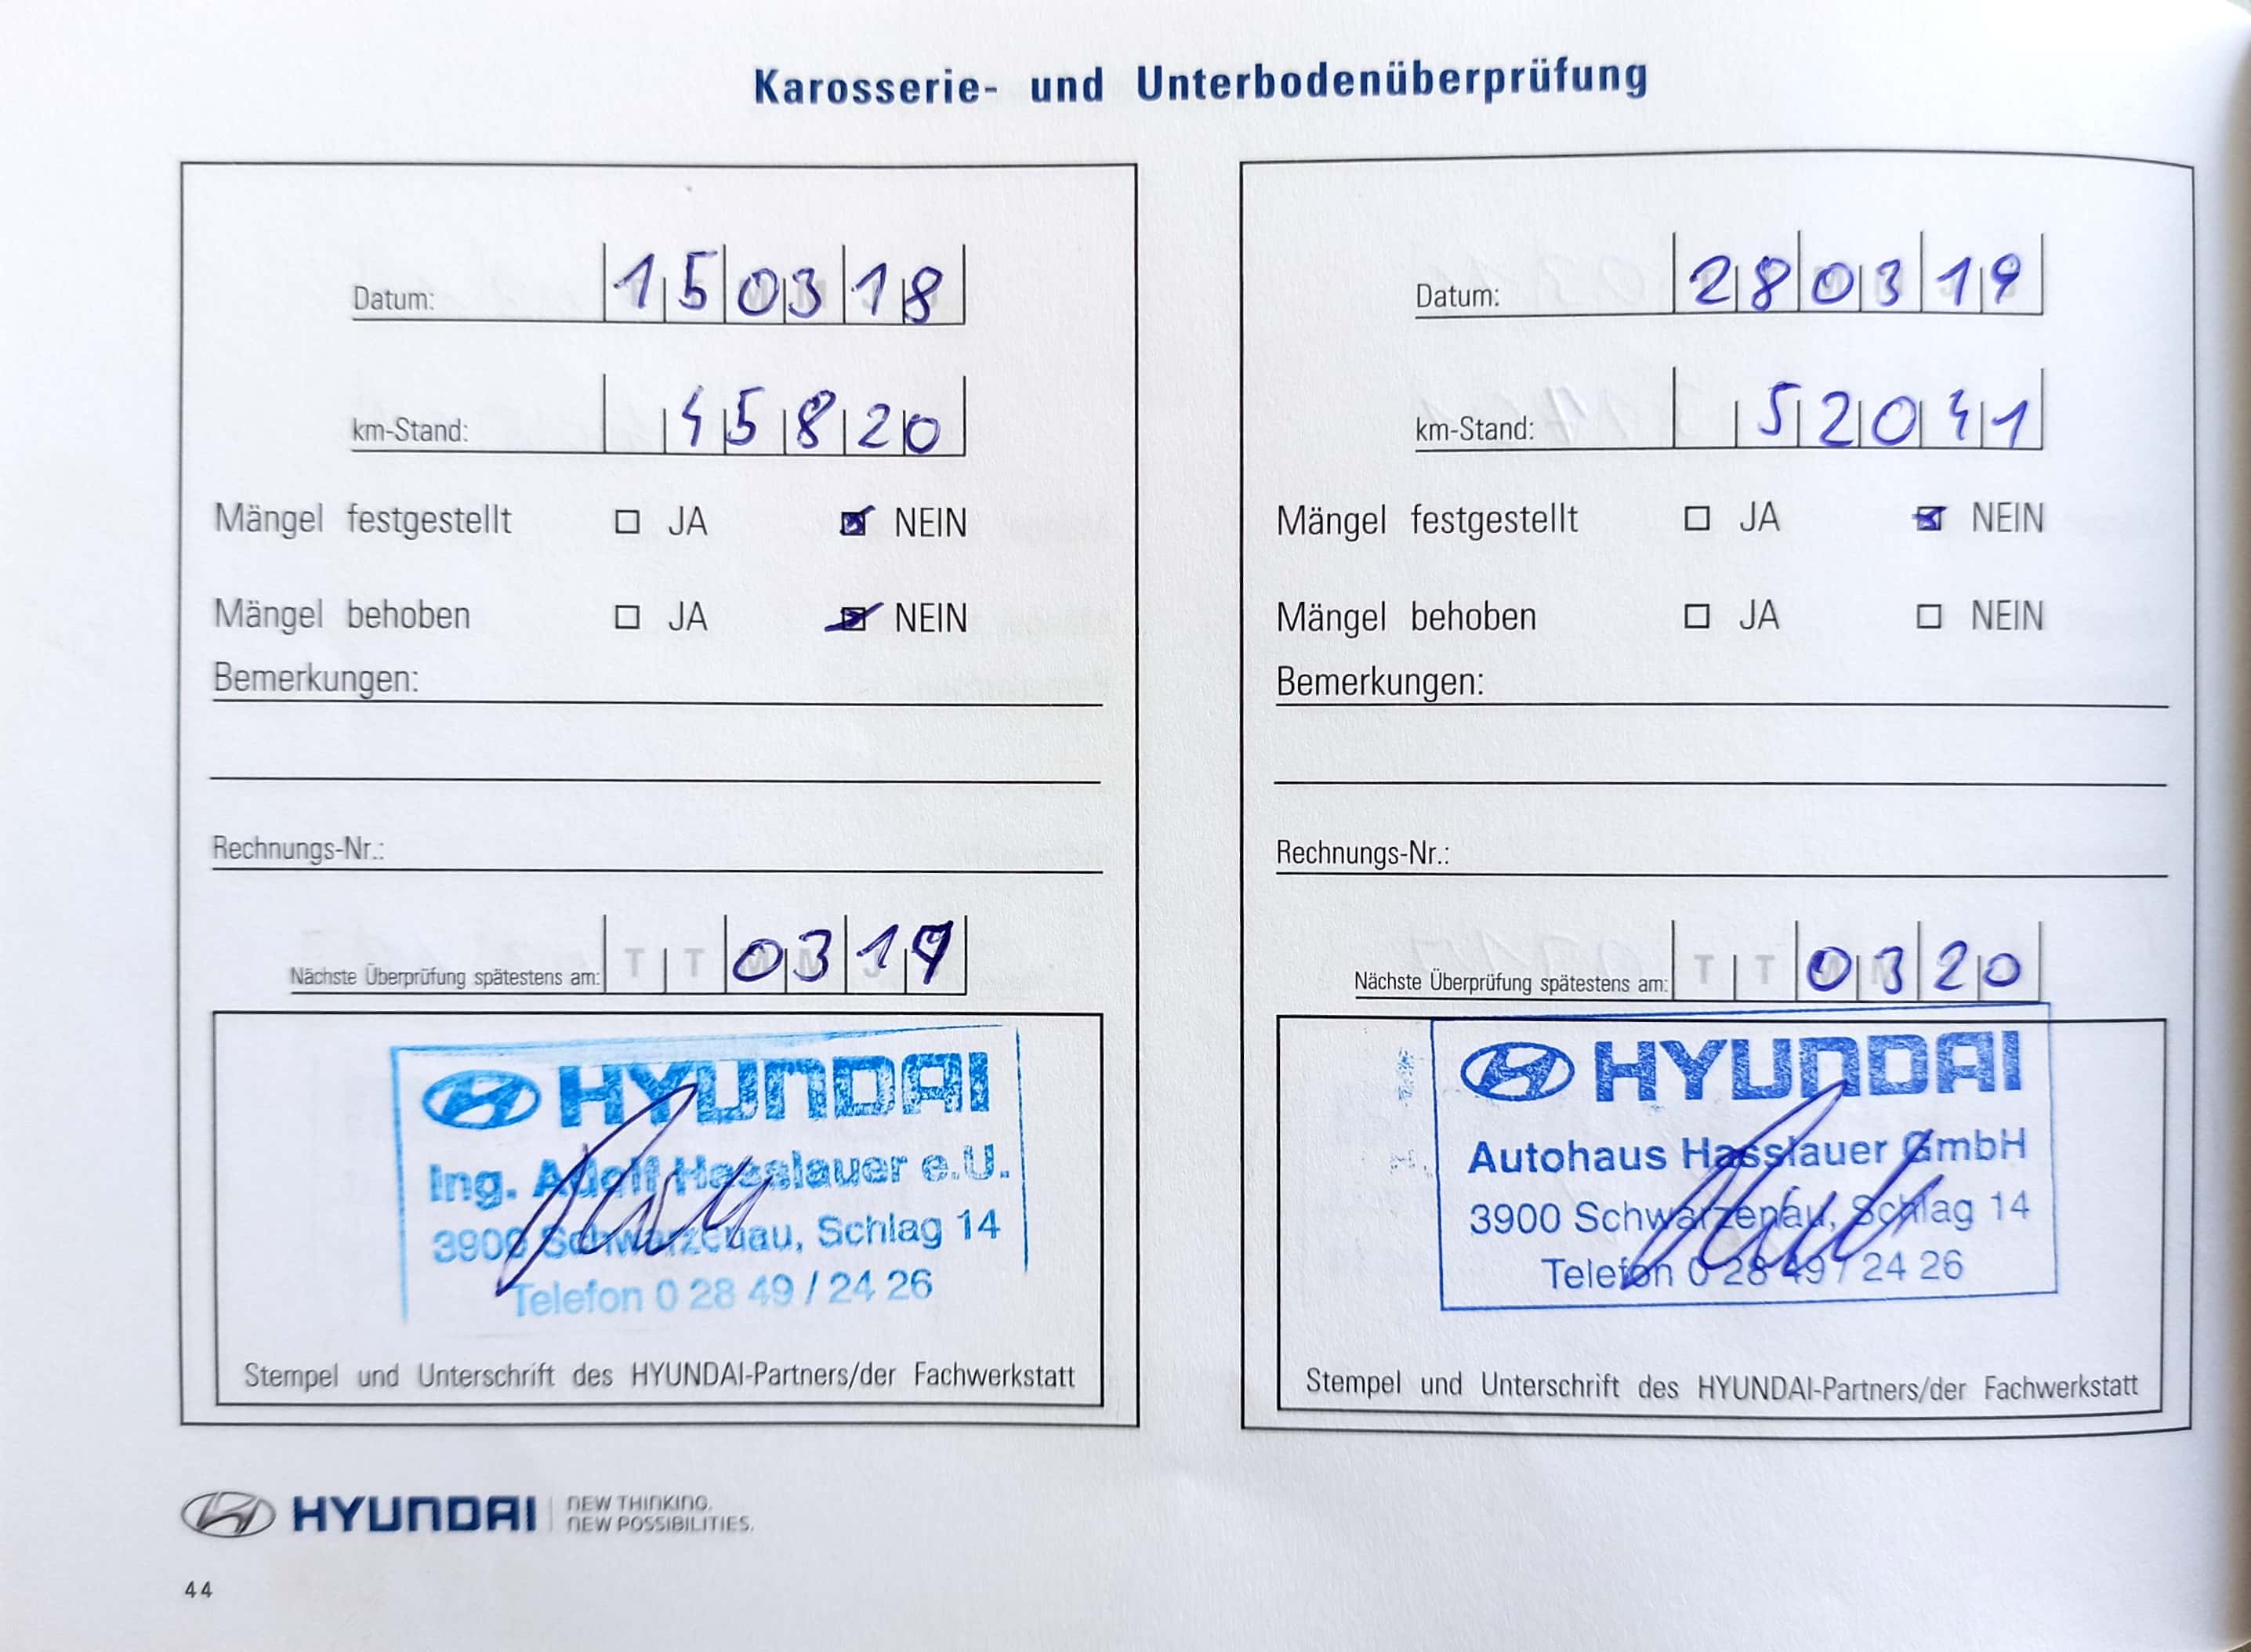 Karosserie- und Unterbodenüberprüfung
Datum: 15 03 18
km-Stand: 45820
Mängel festgestellt JA NEIN
Mängel behoben JA NEIN
Bemerkungen:
Rechnungs-Nr.:
Nächste Überprüfung spätestens am: T T 03 19
HYUNDAI
Ing. Adolf Hasslauer e.U.
3900 Schwarzenau, Schlag 14
Telefon 0 28 49 / 24 26
Stempel und Unterschrift des HYUNDAI-Partners/der Fachwerkstatt
Datum: 28 03 19
km-Stand: 52041
Mängel festgestellt JA NEIN
Mängel behoben JA NEIN
Bemerkungen:
Rechnungs-Nr.:
Nächste Überprüfung spätestens am: T T 03 20
HYUNDAI
Autohaus Hasslauer GmbH
3900 Schwarzenau, Schlag 14
Telefon 0 28 49 / 24 26
Stempel und Unterschrift des HYUNDAI-Partners/der Fachwerkstatt
HYUNDAI
NEW THINKING.
NEW POSSIBILITIES.
44